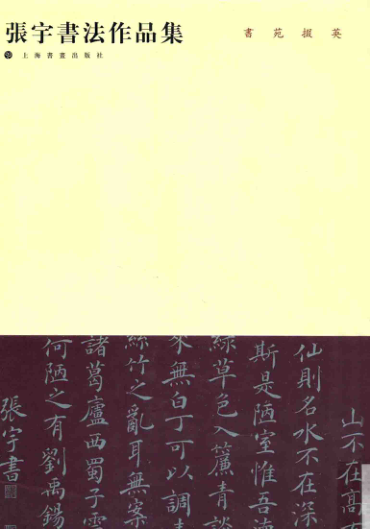 張宇書法作品集
書苑掇英
上海書畫出版社
山不在高有
仙則名水不在深
斯是陋室惟吾德
綠草色入簾青談
來無白丁可以調素
絲竹之亂耳無案
諸葛廬西蜀子雲
何陋之有劉禹錫
張宇書